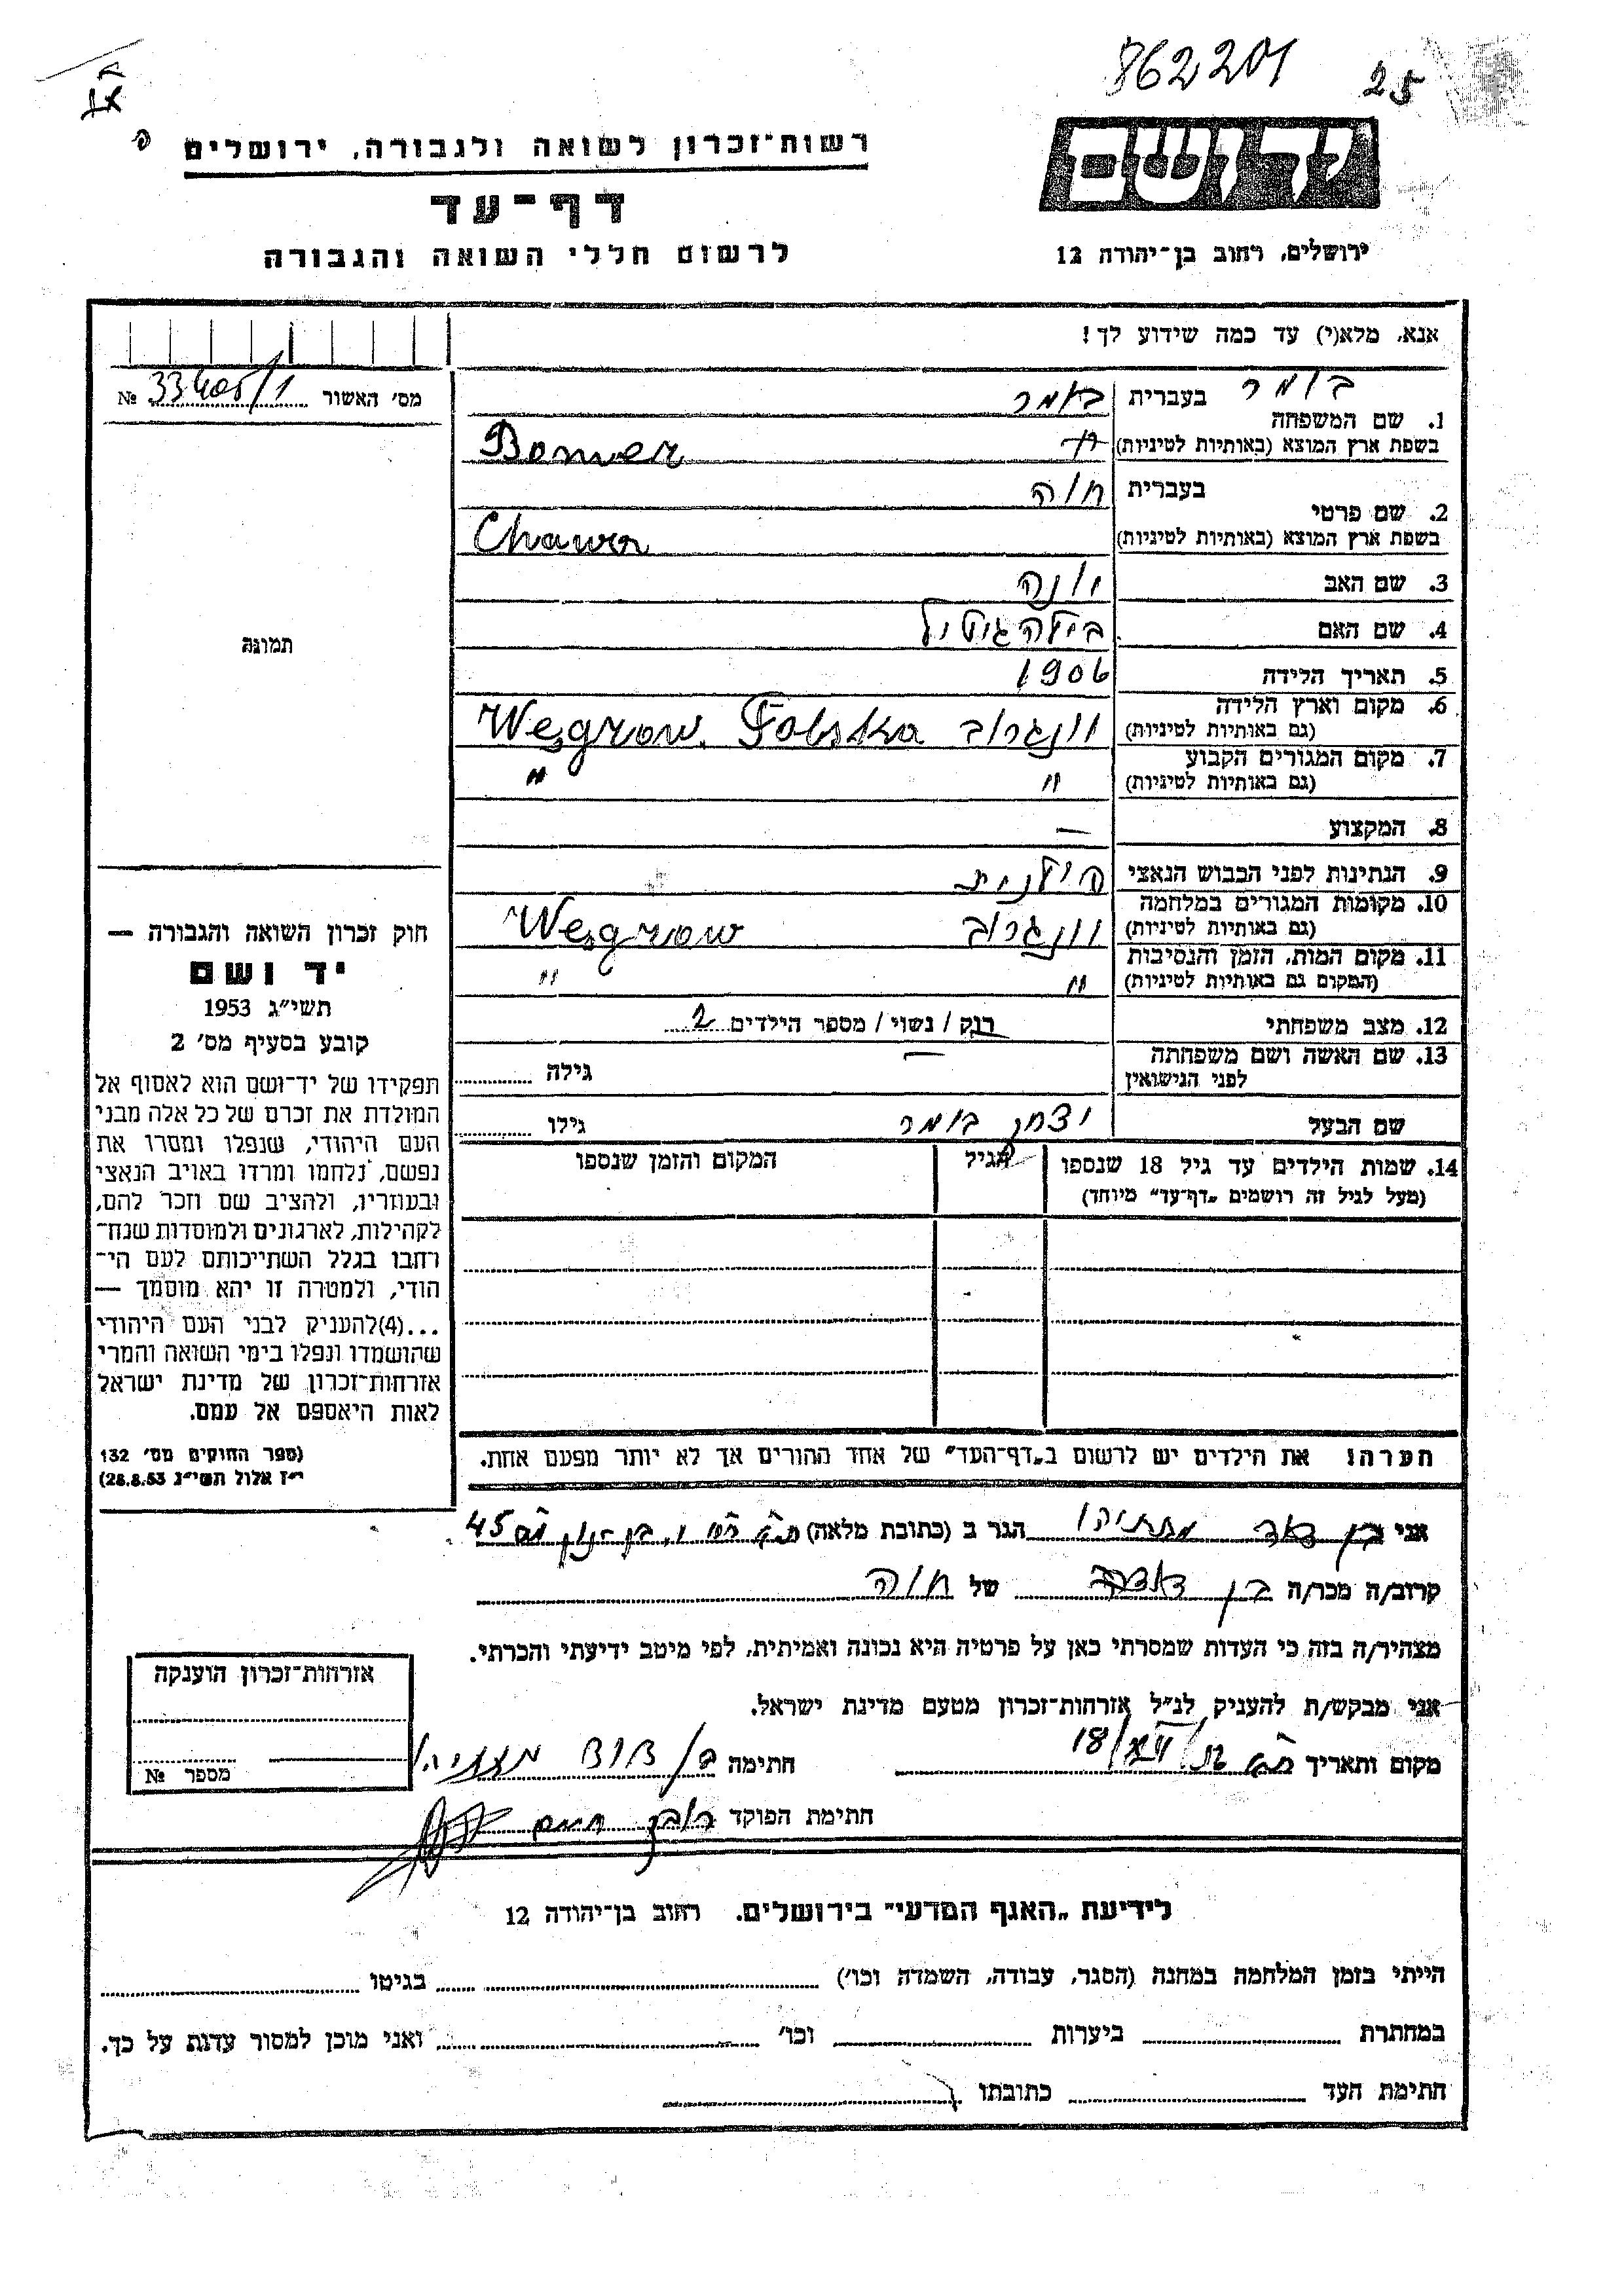 862201 25
רשות־זכרון לשואה ולגבורה, ירושלים
ידושם
דף־עד
לרשום חללי השואה והגבורה
ירושלים, רחוב בן־יהודה 12
אנא, מלא(י) עד כמה שידוע לך!
מס׳ האשור 33405/1 №
1. שם המשפחה
בעברית בומר באמר
בשפת ארץ המוצא (באותיות לטיניות) Bomer
2. שם פרטי
בעברית חוה
בשפת ארץ המוצא (באותיות לטיניות) Chawa
3. שם האב יונה
4. שם האם ביילה גיטל
5. תאריך הלידה 1906
6. מקום וארץ הלידה
(גם באותיות לטיניות) וונגרוב Wesgrow. Polska
7. מקום המגורים הקבוע
(גם באותיות לטיניות) " "
8. המקצוע —
9. הנתינות לפני הכבוש הנאצי פולנית
10. מקומות המגורים במלחמה
(גם באותיות לטיניות) וונגרוב Wesgrow
11. מקום המות, הזמן והנסיבות
(המקום גם באותיות לטיניות) " "
12. מצב משפחתי רוק / נשוי / מספר הילדים 2
13. שם האשה ושם משפחתה
לפני הנישואין — גילה
שם הבעל יצחק בומר גילו
14. שמות הילדים עד גיל 18 שנספו
(מעל לגיל זה רושמים „דף־עד” מיוחד)
הגיל
המקום והזמן שנספו
תמונה
חוק זכרון השואה והגבורה —
יד ושם
תשי״ג 1953
קובע בסעיף מס׳ 2
תפקידו של יד־ושם הוא לאסוף אל
המולדת את זכרם של כל אלה מבני
העם היהודי, שנפלו ומסרו את
נפשם, נלחמו ומרדו באויב הנאצי
ובעוזריו, ולהציב שם וזכר להם,
לקהילות, לארגונים ולמוסדות שנח־
רחבו בגלל השתייכותם לעם הי־
הודי, ולמטרה זו יהא מוסמך —
...(4)להעניק לבני העם היהודי
שהושמדו ונפלו בימי השואה והמרי
אזרחות־זכרון של מדינת ישראל
לאות היאספם אל עמם.
(ספר החוקים מס׳ 132
י״ז אלול תשי״ג 28.8.53)
הערה! את הילדים יש לרשום ב„דף־העד” של אחד ההורים אך לא יותר מפעם אחת.
אני בן דוד מתתיהו הגר ב (כתובת מלאה) 45
קרוב/ה מכר/ה בן של חוה
מצהיר/ה בזה כי העדות שמסרתי כאן על פרטיה היא נכונה ואמיתית, לפי מיטב ידיעתי והכרתי.
אני מבקש/ת להעניק לנ״ל אזרחות־זכרון מטעם מדינת ישראל.
מקום ותאריך 18/ חתימה
חתימת הפוקד
אזרחות־זכרון הוענקה
מספר №
לידיעת „האגף המדעי” בירושלים. רחוב בן־יהודה 12
הייתי בזמן המלחמה במחנה (הסגר, עבודה, השמדה וכו׳) בגיטו
במחתרת ביערות וכו׳ ואני מוכן למסור עדות על כך.
חתימת העד כתובתו